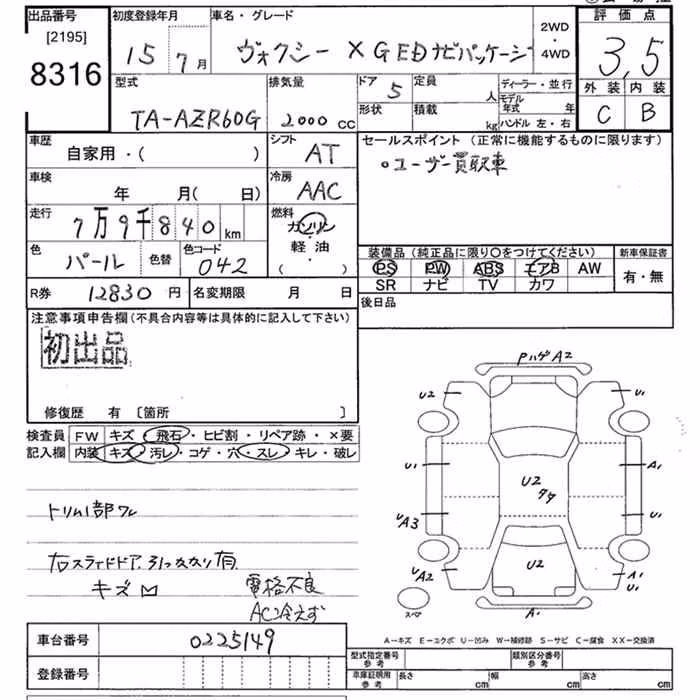 出品番号
[2195]
8316
初度登録年月
15 7月
車名・グレード
ヴォクシー X G EDナビパッケージ
2WD
・
4WD
評価点
3,5
外装 内装
C B
型式
TA-AZR60G
排気量
2000 cc
ドア 5
形状
定員 人
積載 kg
ディーラー・並行
モデル年式 年
ハンドル 左・右
車歴
自家用・( )
シフト AT
セールスポイント (正常に機能するものに限ります)
○ユーザー買取車
車検
年 月( 日)
冷房 AAC
走行
7万9千840 km
燃料
ガソリン
軽・油
( ・ )
色 パール 色替
色コード 042
装備品 (純正品に限り○をつけてください)
PS PW ABS エアB AW
SR ナビ TV カワ
新車保証書
有・無
R券 12830 円
名変期限 月 日
後日品
注意事項申告欄 (不具合内容等は具体的に記入して下さい)
初出品
修復歴 有 〔箇所 〕
検査員
記入欄
FW キズ・飛石・ヒビ割・リペア跡・×要
内装 キズ・汚レ・コゲ・穴・スレ・キレ・破レ
トリム1部ワレ
右スライドドア引っかかり有
キズ凹
電格不良
AC冷えず
PハゲA2
U2
U1
U1
A1
U2
タタ
UA3
U1
UA2
U2
A1
U1
スペア
A1
A-キズ E-エクボ U-凹み W-補修跡 S-サビ C-腐食 XX-交換済
車台番号 0225149
登録番号
型式指定番号
参考
類別区分番号
参考
車庫証明用
参考
長さ cm
幅 cm
高さ cm